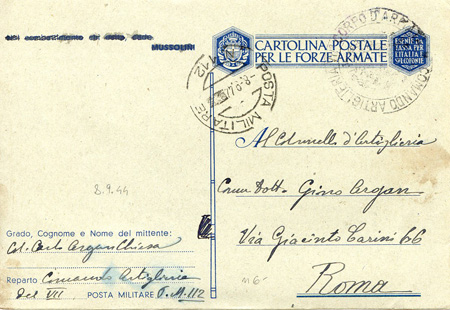 MUSSOLINI
CARTOLINA POSTALE
PER LE FORZE ARMATE
ESENTE DA
TASSA PER
L'ITALIA E
POSTA MILITARE
112
COMANDO ARTIG
CORPO D'AR
Al Colonnello d'Artiglieria
Comm Dott. Gino Argan
Via Giacinto Carini 66
Roma
Grado, Cognome e Nome del mittente:
Col. Carlo Argan Chiesa
Reparto Comando Artiglieria
del VII POSTA MILITARE P.M. 112